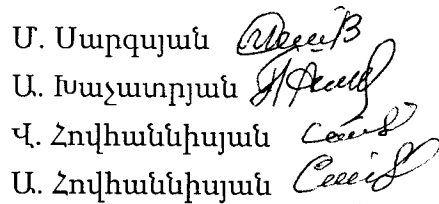 Մ. Սարգսյան
Ա. Խաչատրյան
Վ. Հովհաննիսյան
Ա. Հովհաննիսյան